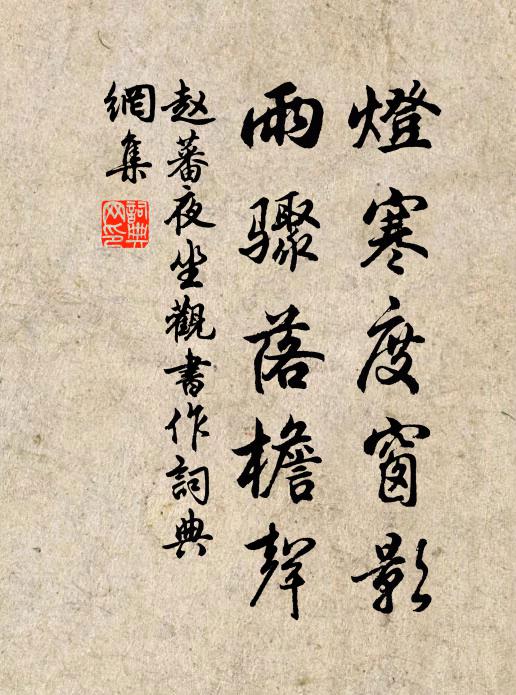 燈寒度窗影
雨驟落檐聲
赵蕃夜坐觀書作詞典
網集
詞典網印